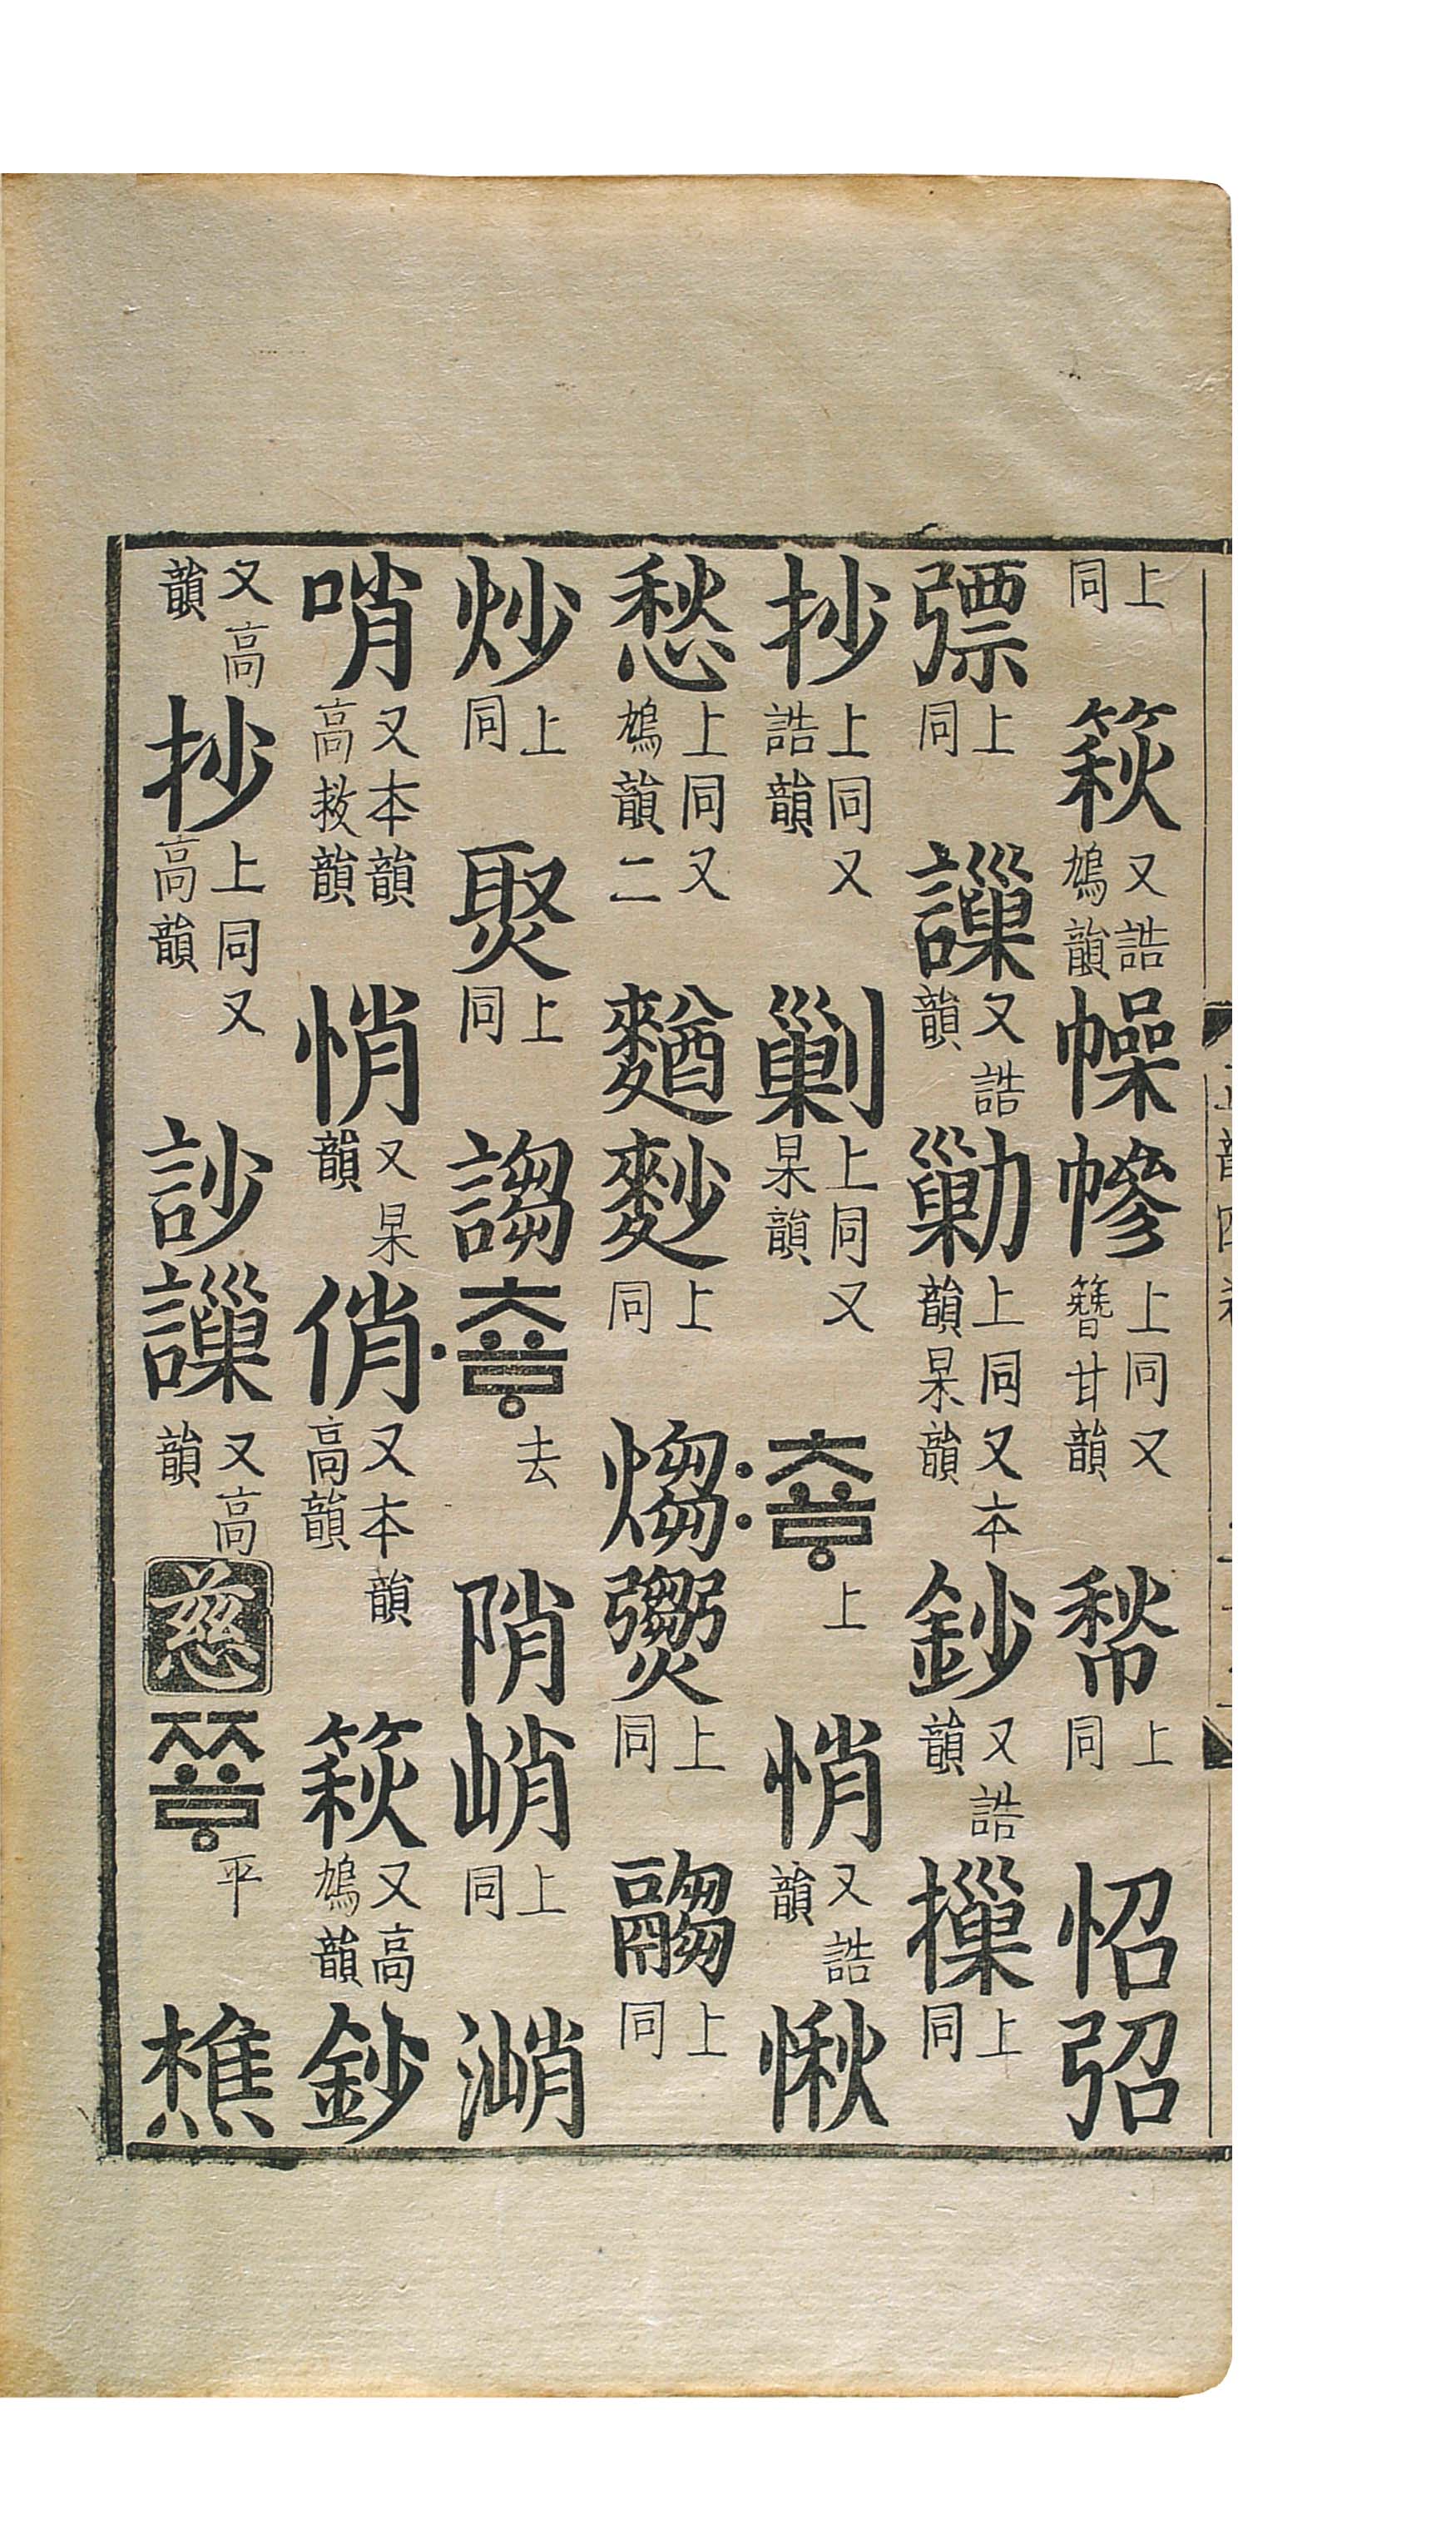 上同 篍 又誥鳩韻 幧 幓 上同又簪甘韻 上同 怊 弨
上同 䜈 又誥韻 勦 上同又本韻杲韻 鈔 又誥韻 摷 上同
抄 上同又誥韻 剿 上同又杲韻 〯ᅕᅭᇢ 上 悄 又誥韻 愀
愁 上同又二鳩韻 麨 上同 煼 上同 上同
炒 上同 㷅 上同 謅 〮ᅕᅭᇢ 去 陗 峭 上同 潲
哨 又本韻高救韻 悄 又杲韻 俏 又本韻高韻 篍 又高鳩韻 鈔
又高韻 抄 上同又高韻 訬 䜈 又高韻 慈 ᅏᅭᇢ 平 樵